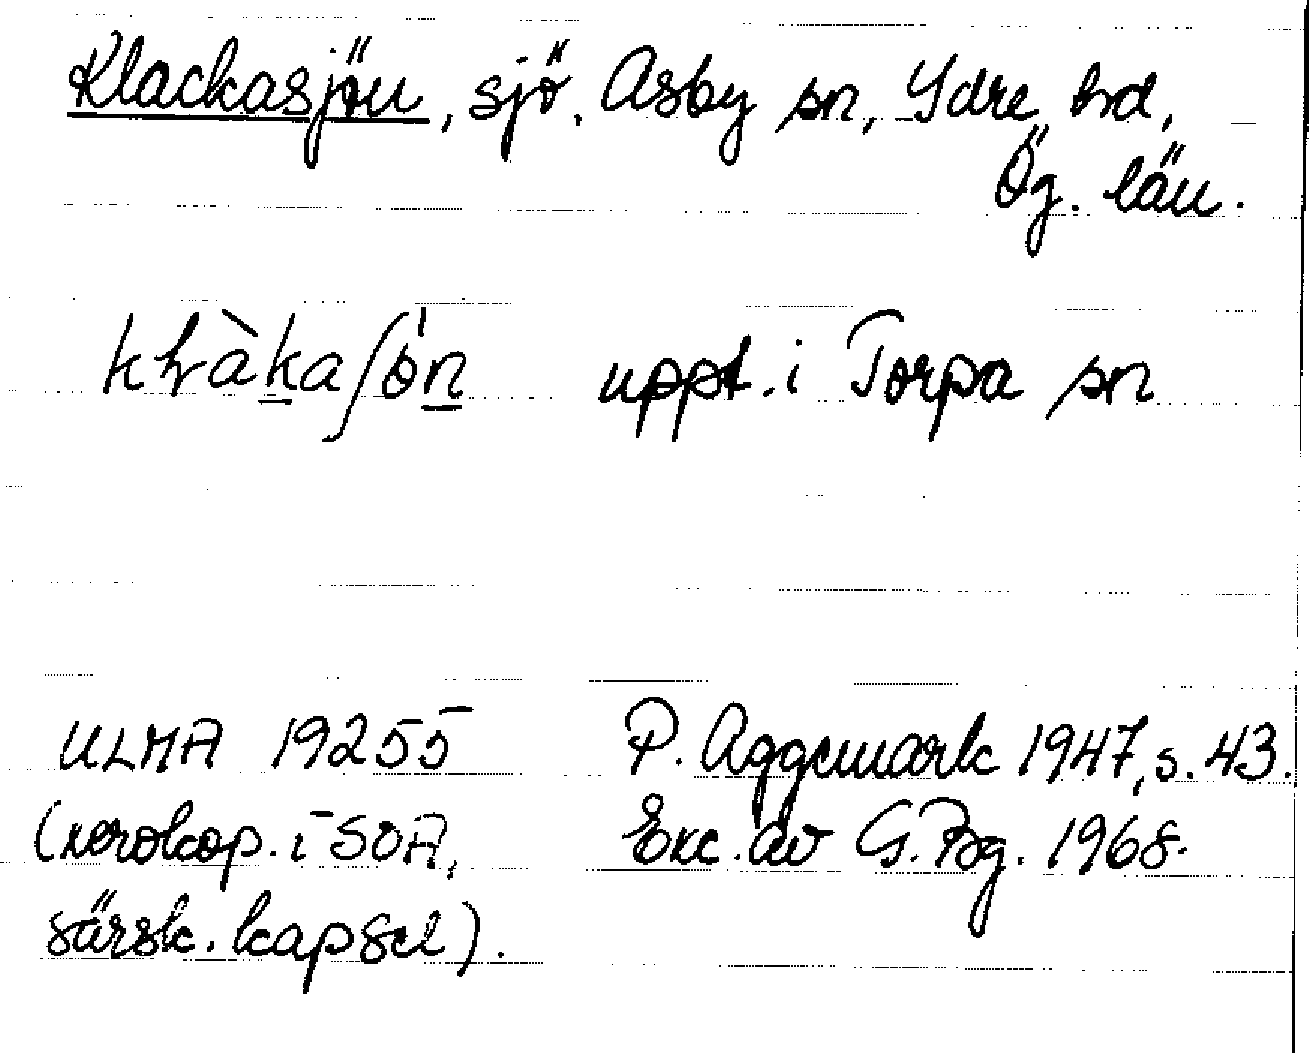 Klackasjön, sjö. Asby sn, Ydre hd,
Ög. län.
uppt. i Torpa sn
ULMA 19255 P. Aggemark 1947, s. 43.
(xerokop. i SOA, Exc. av G. Bg. 1968.
särsk. kapsel).